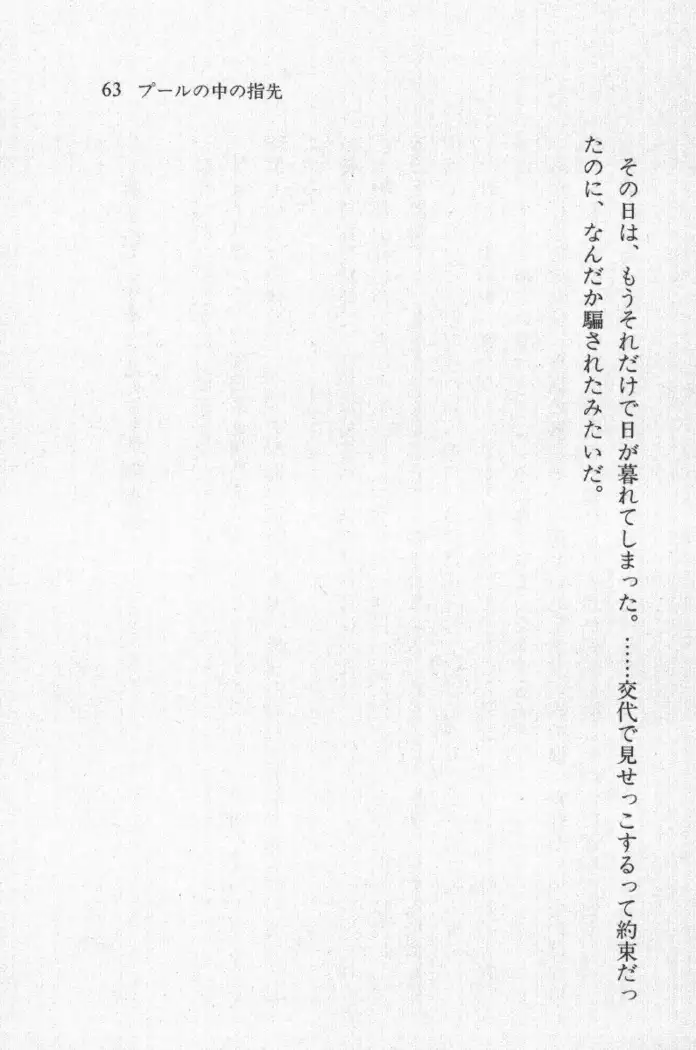 63 プールの中の指先
その日は、もうそれだけで日が暮れてしまった。……交代で見せっこするって約束だっ
たのに、なんだか騙されたみたいだ。